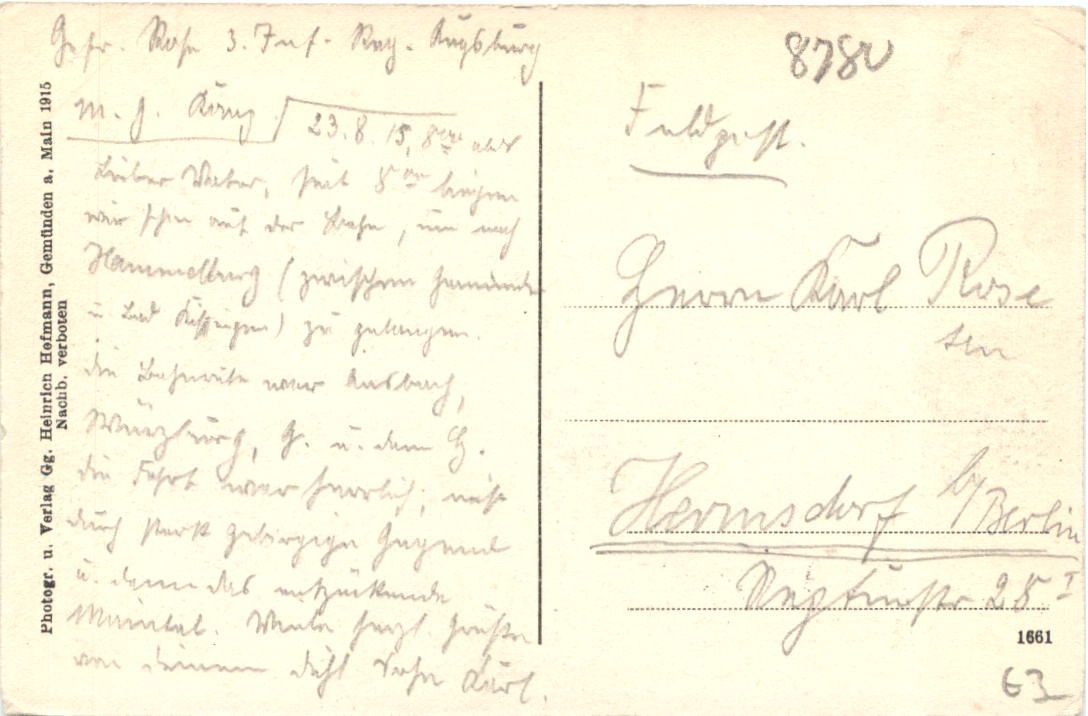 Gefr. Rose 3. Inf. Reg. Augsburg
M. G. Komp.
23.8.15, 8 abds
Lieber Vater, seit 5 liegen
wir schon auf der Bahn, um nach
Hammelburg (zwischen Gemünden
u. Bad Kissingen) zu gelangen.
Die Bahnroute war Ansbach,
Würzburg, G. u. dann H.
Die Fahrt war herrlich,
durch stark gebirgige Gegend
u. dann das entzückende
Maintal. Viele herzl. Grüße
von Deinem Sohn Karl.
Photogr. u. Verlag Gg. Heinrich Hofmann, Gemünden a. Main 1915
Nachb. verboten
8780
Feldpost.
Herrn Karl Rose
sen
Hermsdorf b/Berlin
28 I
1661
63